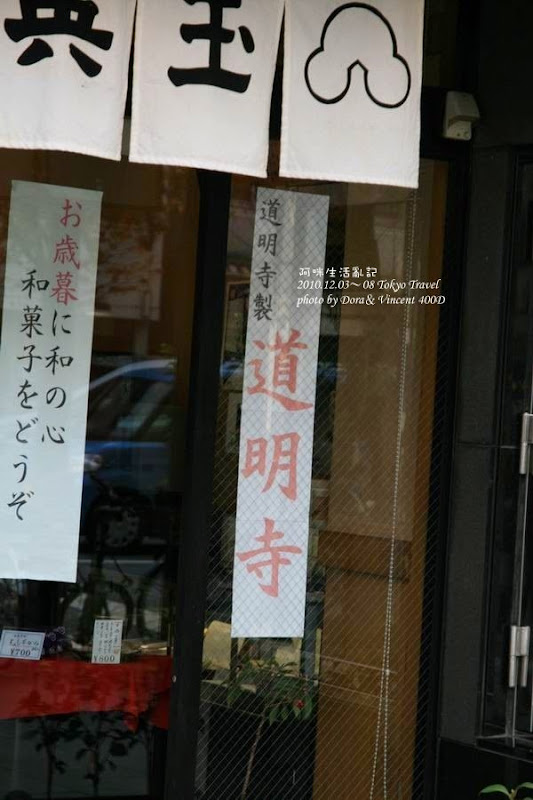 玉
お歳暮に和の心
和菓子をどうぞ
道明寺製
道明寺
阿咪生活亂記
2010.12.03～08 Tokyo Travel
photo by Dora & Vincent 400D
¥700
¥800